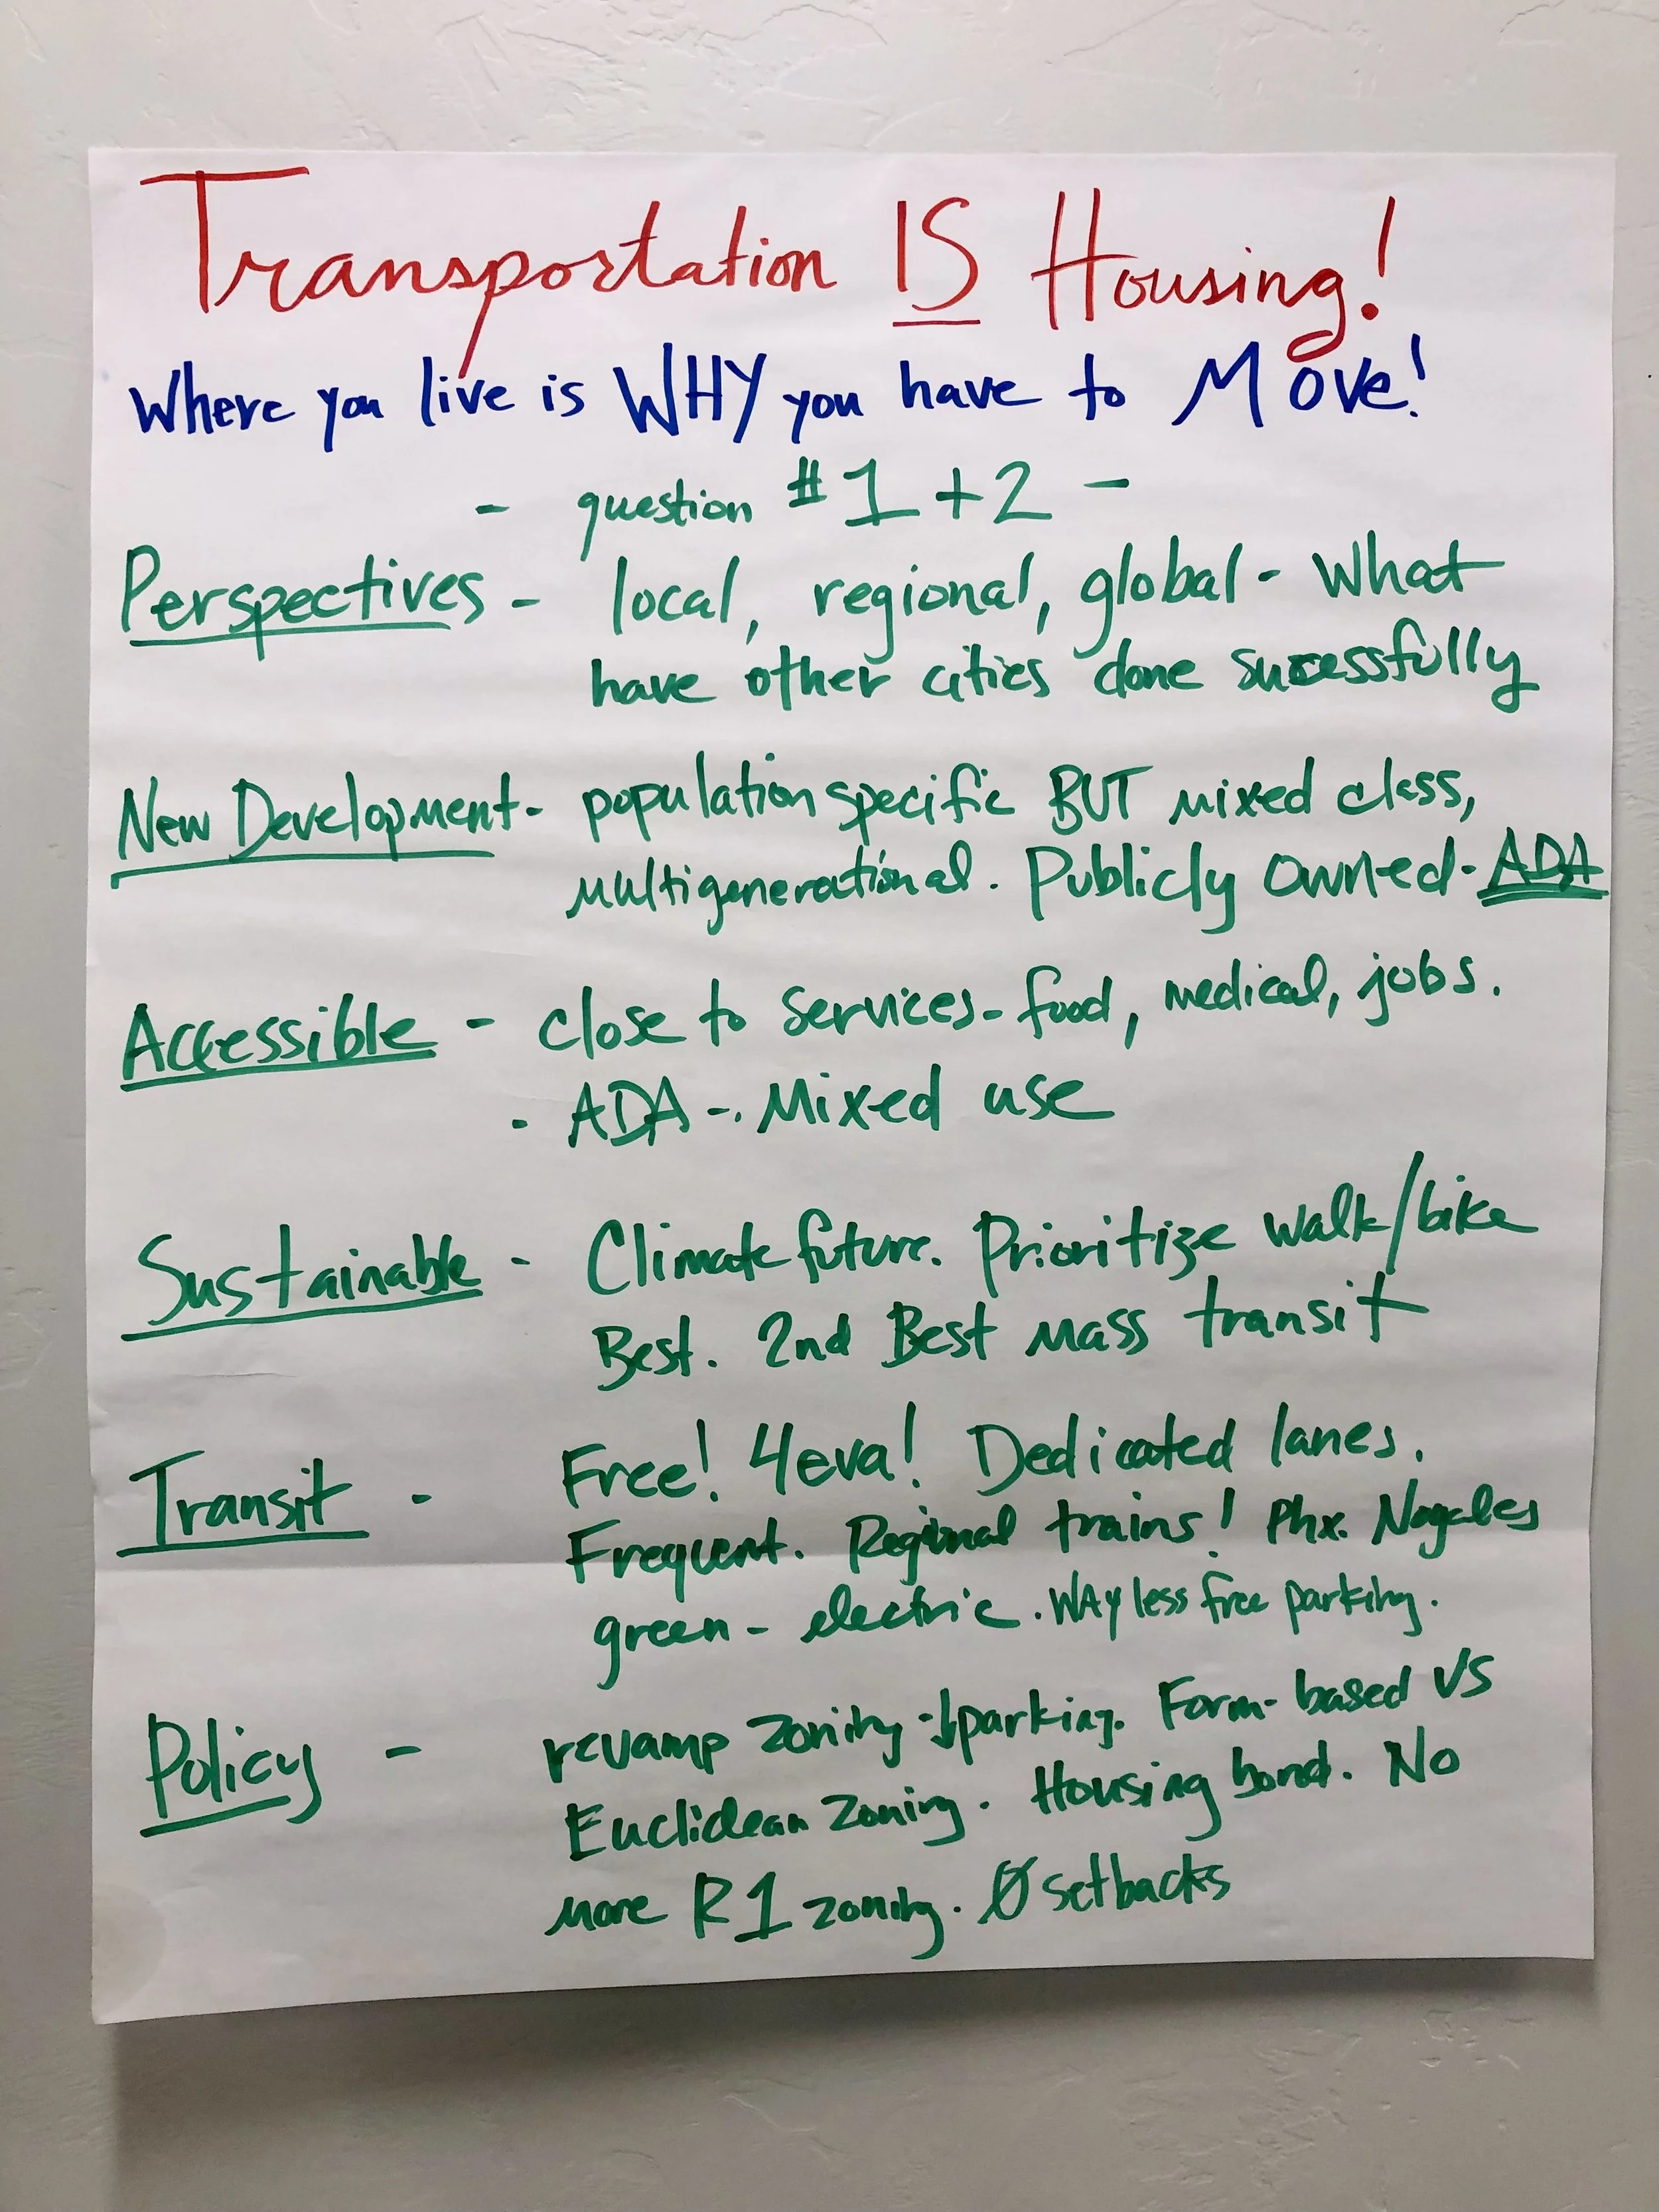 Transportation IS Housing!
Where you live is WHY you have to Move!
- question #1 + 2 -
Perspectives - local, regional, global - What
have other cities done sucessfully
New Development - population specific BUT mixed class,
multigenerational. Publicly owned - ADA
Accessible - close to services - food, medical, jobs.
- ADA -. Mixed use
Sustainable - Climate future. Prioritize walk/bike
Best. 2nd Best mass transit
Transit - Free! 4eva! Dedicated lanes.
Frequent. Regional trains! Phx. Nogales
green - electric. WAY less free parking.
Policy - revamp zoning - ↓parking. Form-based VS
Euclidean zoning. Housing bond. No
more R1 zoning. Ø setbacks